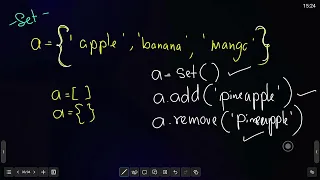 15:24
-Set-
a={'apple','banana','mango'}
a=set()
a=[]
a={}
a.add('pineapple')
a.remove('pineapple')